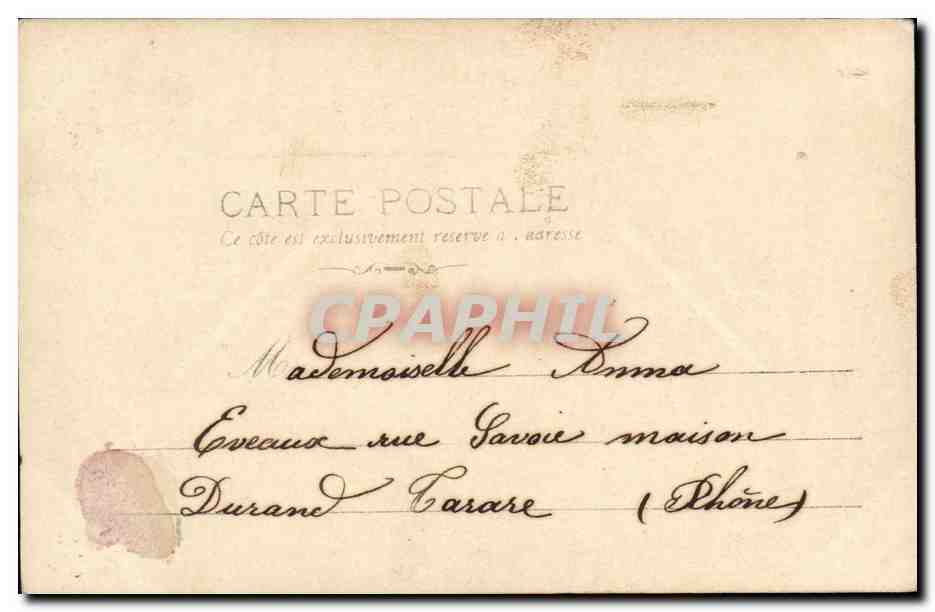 CARTE POSTALE
Ce côte est exclusivement reserve a l'adresse
CPAPHIL
Mademoiselle Anna
Eveaux rue Savoie maison
Durand Tarare (Rhône)